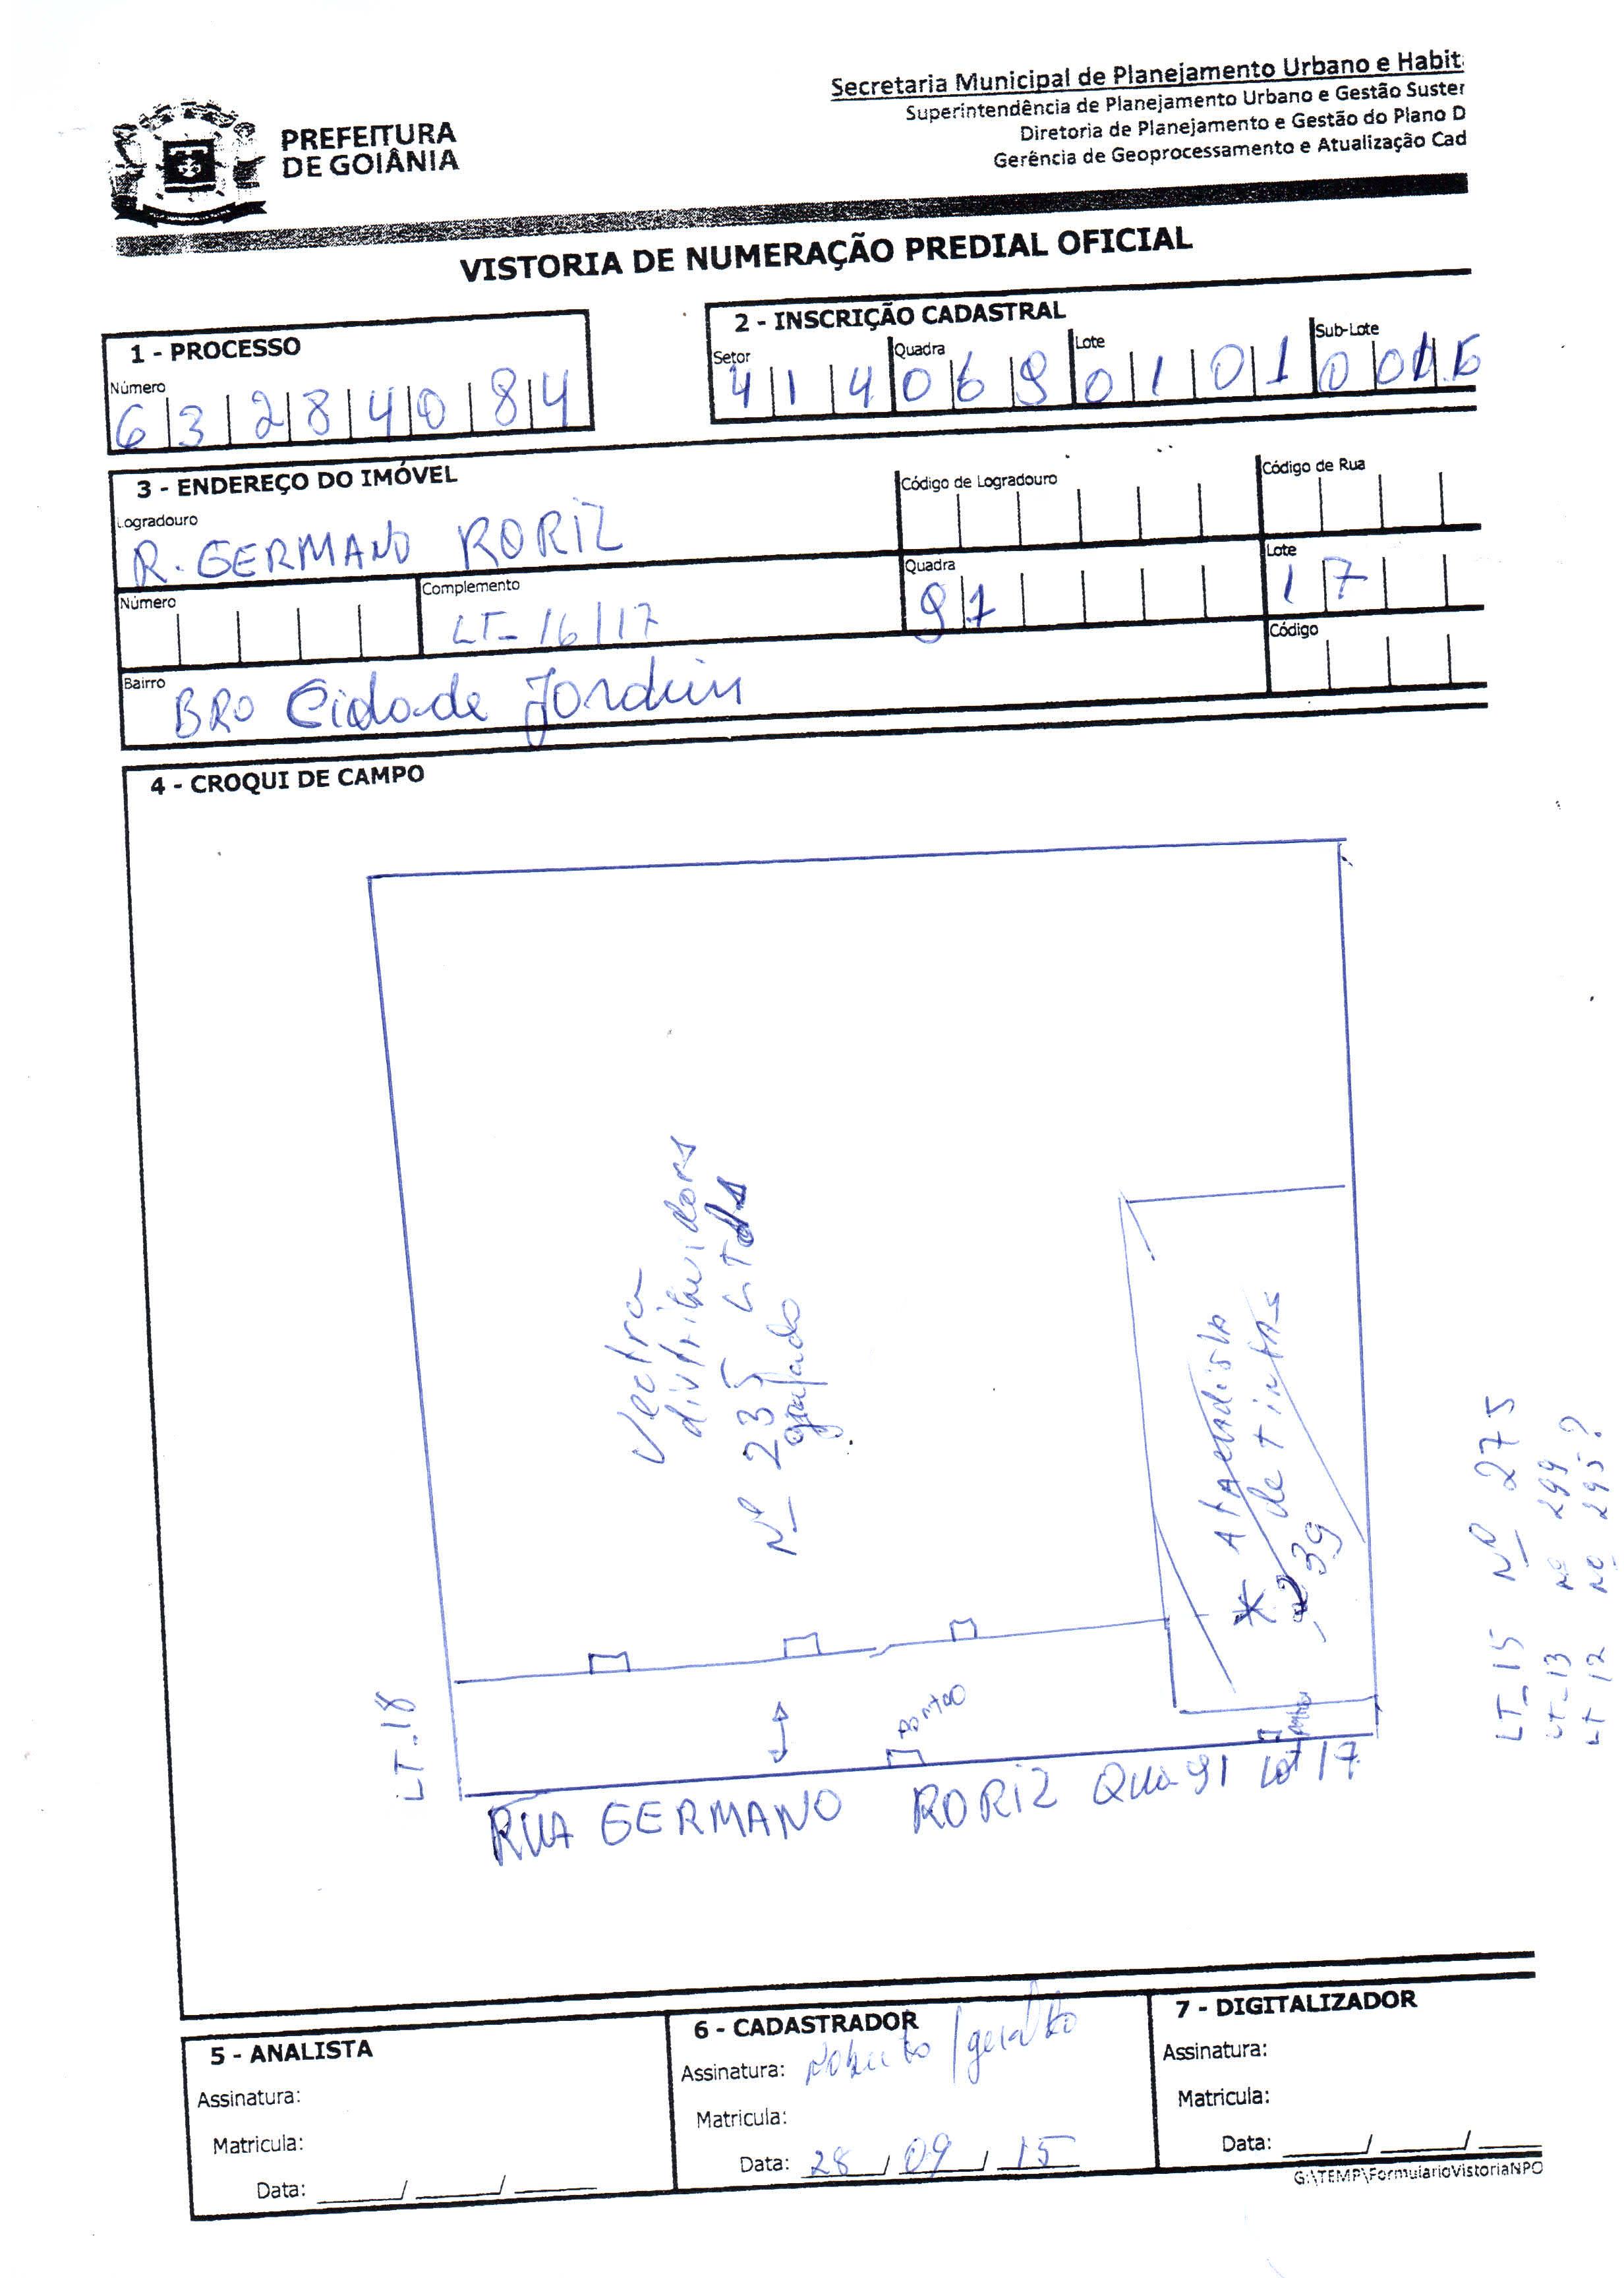 PREFEITURA
DE GOIÂNIA
Secretaria Municipal de Planejamento Urbano e Habit
Superintendência de Planejamento Urbano e Gestão Suster
Diretoria de Planejamento e Gestão do Plano D
Gerência de Geoprocessamento e Atualização Cad
VISTORIA DE NUMERAÇÃO PREDIAL OFICIAL
1 - PROCESSO
Número
6 3 2 8 4 0 8 4
2 - INSCRIÇÃO CADASTRAL
Setor Quadra Lote Sub-Lote
4 1 4 0 6 9 0 1 0 1 0 0
3 - ENDEREÇO DO IMÓVEL
Logradouro
R. GERMANO RORIZ
Código de Logradouro
Código de Rua
Número
Complemento
LT- 16/17
Quadra
91
Lote
17
Bairro
BRO Cidade Jardim
Código
4 - CROQUI DE CAMPO
Vectra
distribuidora
Nº 235 LTDA
* Atacadista
de tintas
239
LT-15 Nº 275
LT-13 Nº 299
LT 12 Nº 295?
LT.18
RUA GERMANO RORIZ Qua 91 Lot 17
5 - ANALISTA
Assinatura:
Matricula:
Data: ____/____/____
6 - CADASTRADOR
Assinatura: Roberto/geraldo
Matricula:
Data: 28/09/15
7 - DIGITALIZADOR
Assinatura:
Matricula:
Data: ____/____/____
G:\TEMP\FormularioVistoriaNPO